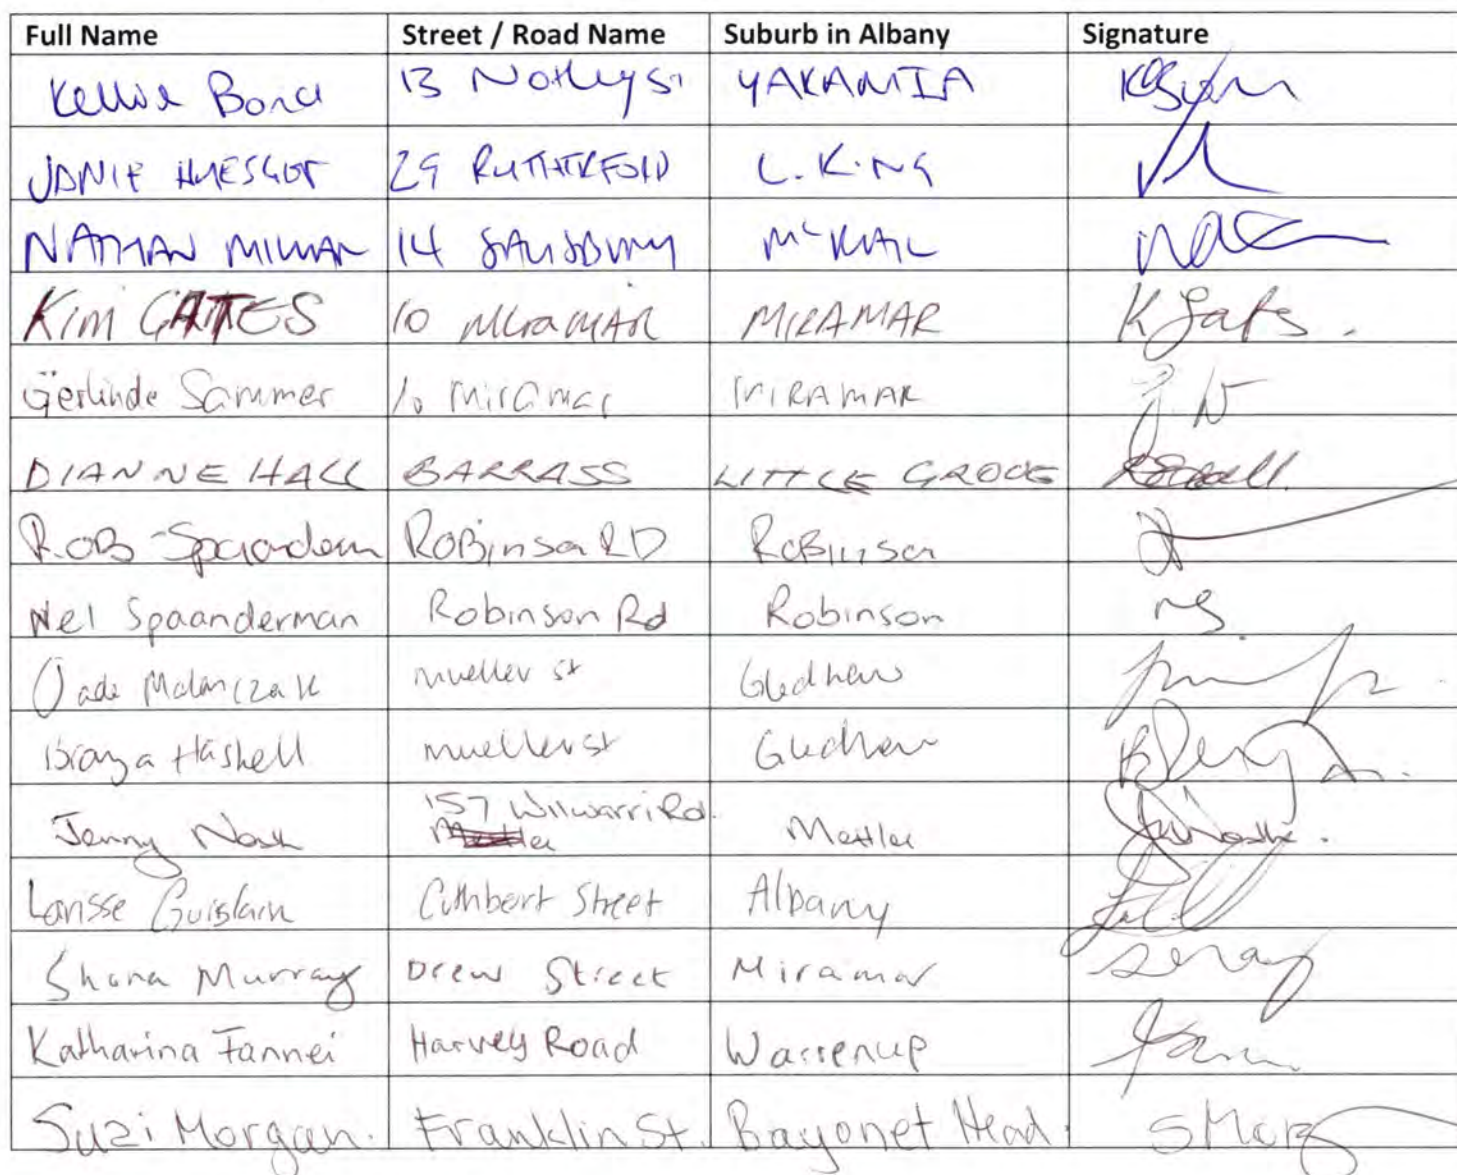 Full Name Street / Road Name Suburb in Albany Signature
Kellie Bond 13 Notley St YAKAMIA
JAMIE 29 RUTHERFORD L. KING
NATHAN MILLAR 14 SALISBURY McKAIL
KIM GATES 10 MIRAMAR MIRAMAR K Gates.
Gerlinde Sammer 10 Miramar MIRAMAR
DIANNE HALL BARRASS LITTLE GROVE
ROB Robinson RD Robinson
Nel Spaanderman Robinson Rd Robinson NS.
Jade Malanczak mueller st Gledhow
Haskell mueller st Gledhow
157 Wilwarri Rd.
Jenny Nash Mettler
Larisse Guislain Cuthbert Street Albany
Shona Murray Drew Street Miramar
Katharina Fannei Harvey Road Warrenup
Suzi Morgan. Franklin St. Bayonet Head. SMorg